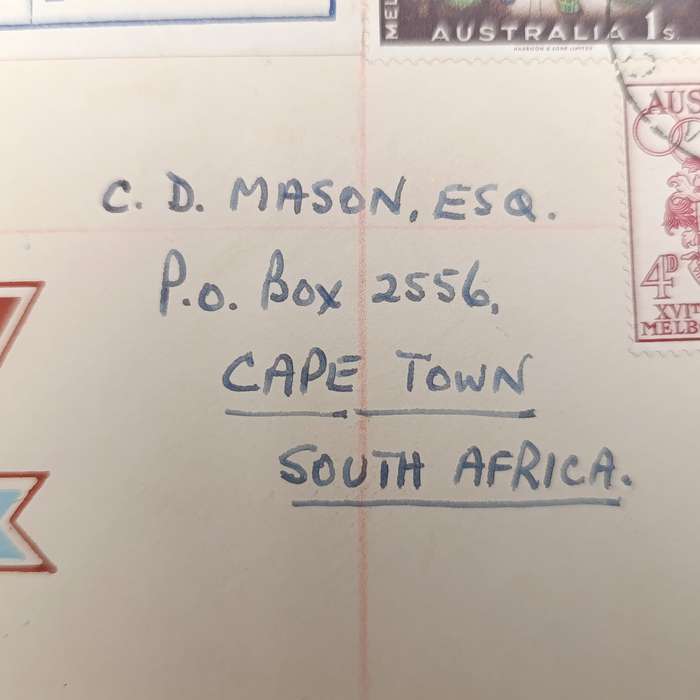 MEL
AUSTRALIA 1s
HARRISON & SONS LIMITED
AUS
4D
XVIT
MELB
C. D. MASON, ESQ.
P.O. Box 2556,
CAPE TOWN
SOUTH AFRICA.